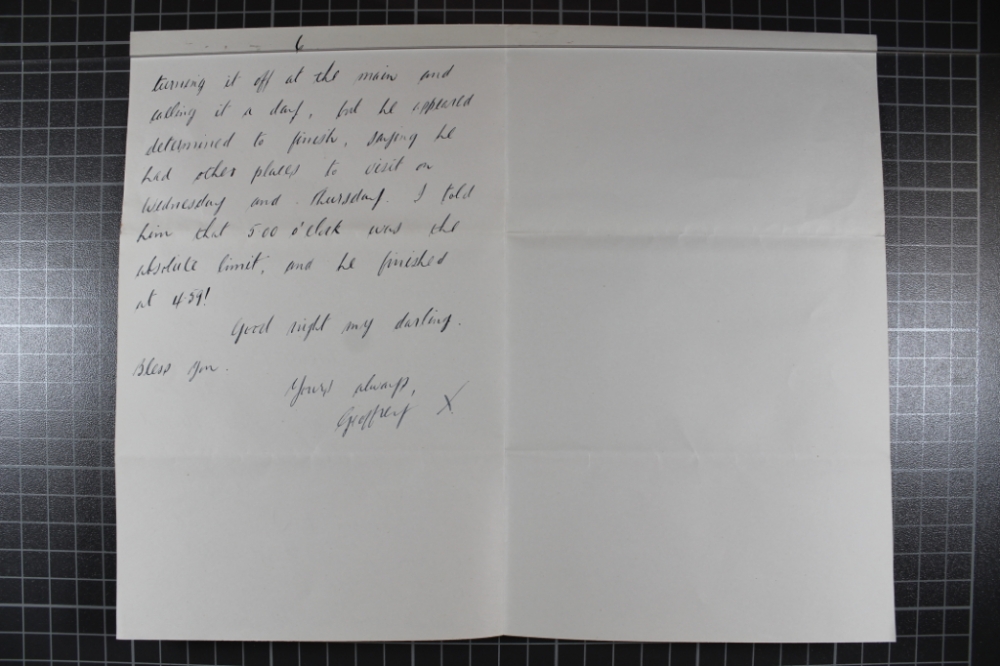 6
turning it off at the main and
calling it a day, but he appeared
determined to finish, saying he
had other places to visit on
Wednesday and Thursday. I told
him that 5.00 o'clock was the
absolute limit, and he finished
at 4.59!
Good night my darling.
Bless you.
Yours always,
Geoffrey X